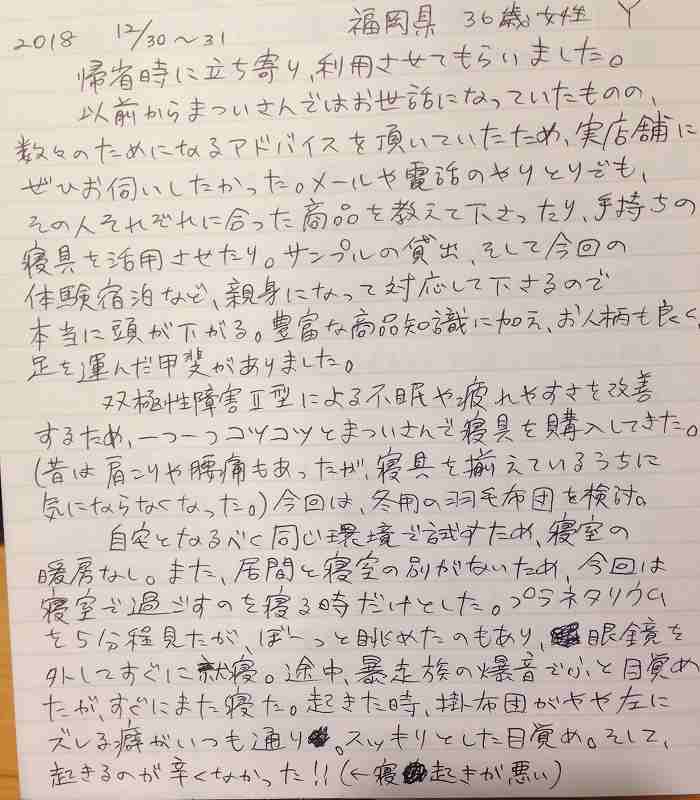 2018 12/30～31 福岡県 36歳 女性 Y
帰省時に立ち寄り、利用させてもらいました。
以前からまついさんではお世話になっていたものの、
数々のためになるアドバイスを頂いていたため、実店舗に
ぜひお伺いしたかった。メールや電話のやりとりでも、
その人それぞれに合った商品を教えて下さったり、手持ちの
寝具を活用させたり。サンプルの貸出、そして今回の
体験宿泊など、親身になって対応して下さるので
本当に頭が下がる。豊富な商品知識に加え、お人柄も良く、
足を運んだ甲斐がありました。
双極性障害Ⅱ型による不眠や疲れやすさを改善
するため、一つ一つコツコツとまついさんで寝具を購入してきた。
(昔は肩こりや腰痛もあったが、寝具を揃えているうちに
気にならなくなった。)今回は、冬用の羽毛布団を検討。
自宅となるべく同じ環境で試すため、寝室の
暖房なし。また、居間と寝室の別がないため、今回は
寝室で過ごすのを寝る時だけとした。プラネタリウム
を5分程見たが、ぼーっと眺めたのもあり、眼鏡を
外してすぐに就寝。途中、暴走族の爆音でふと目覚め
たが、すぐにまた寝た。起きた時、掛布団がやや左に
ズレる癖がいつも通り。スッキリとした目覚め。そして、
起きるのが辛くなかった!!(←寝起きが悪い)